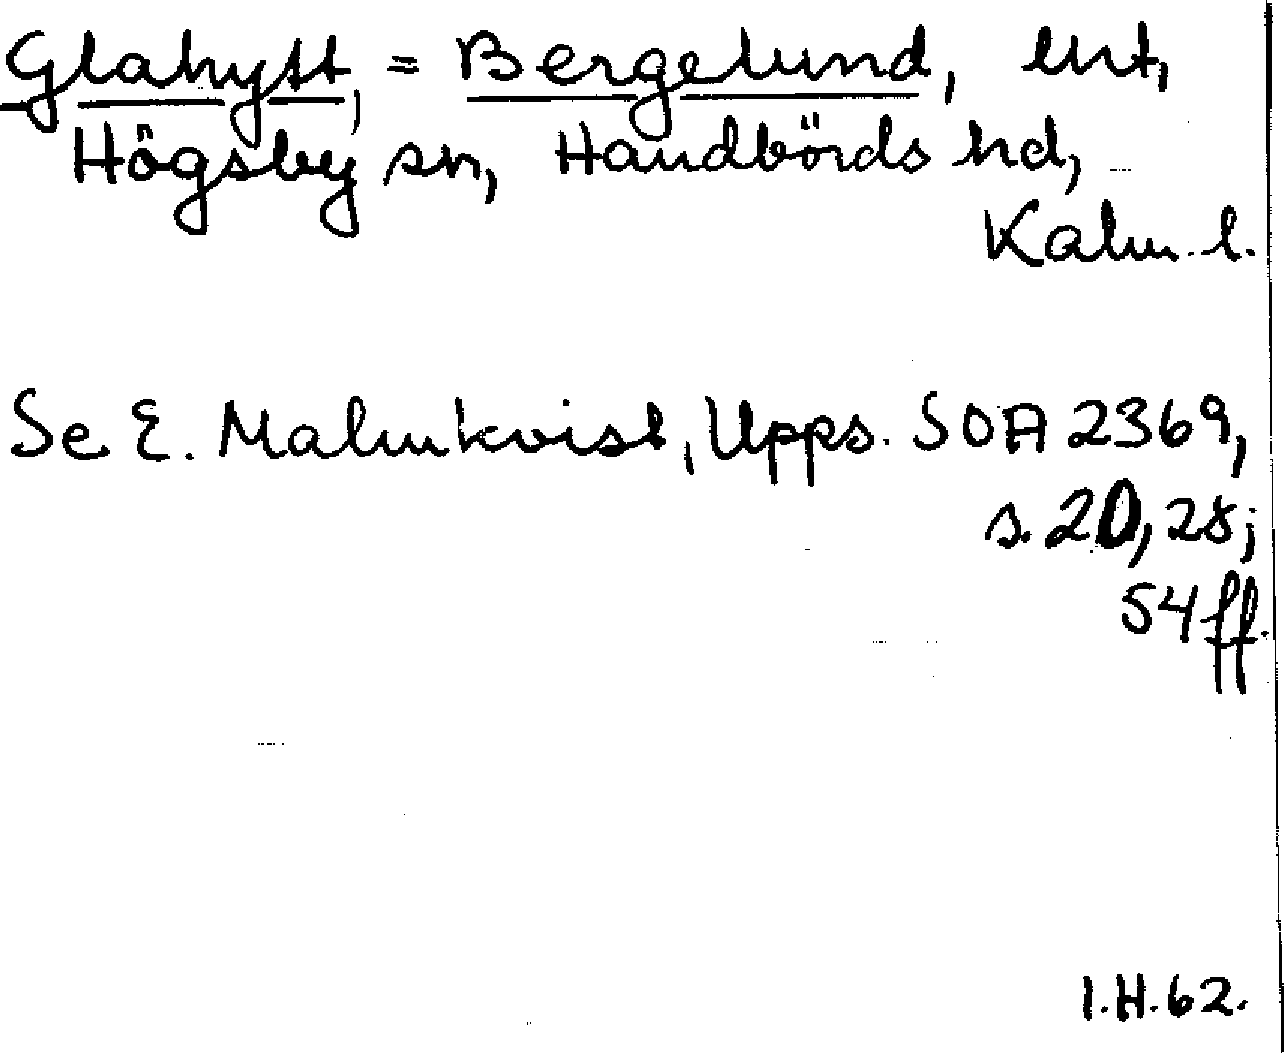 Glahytt, = Bergelund, lht,
Högsby sn, Handbörds hd,
Kalm. l.
Se E. Malmkvist, Upps. SOA 2369,
s. 20, 28;
54 ff.
I.H. 62.